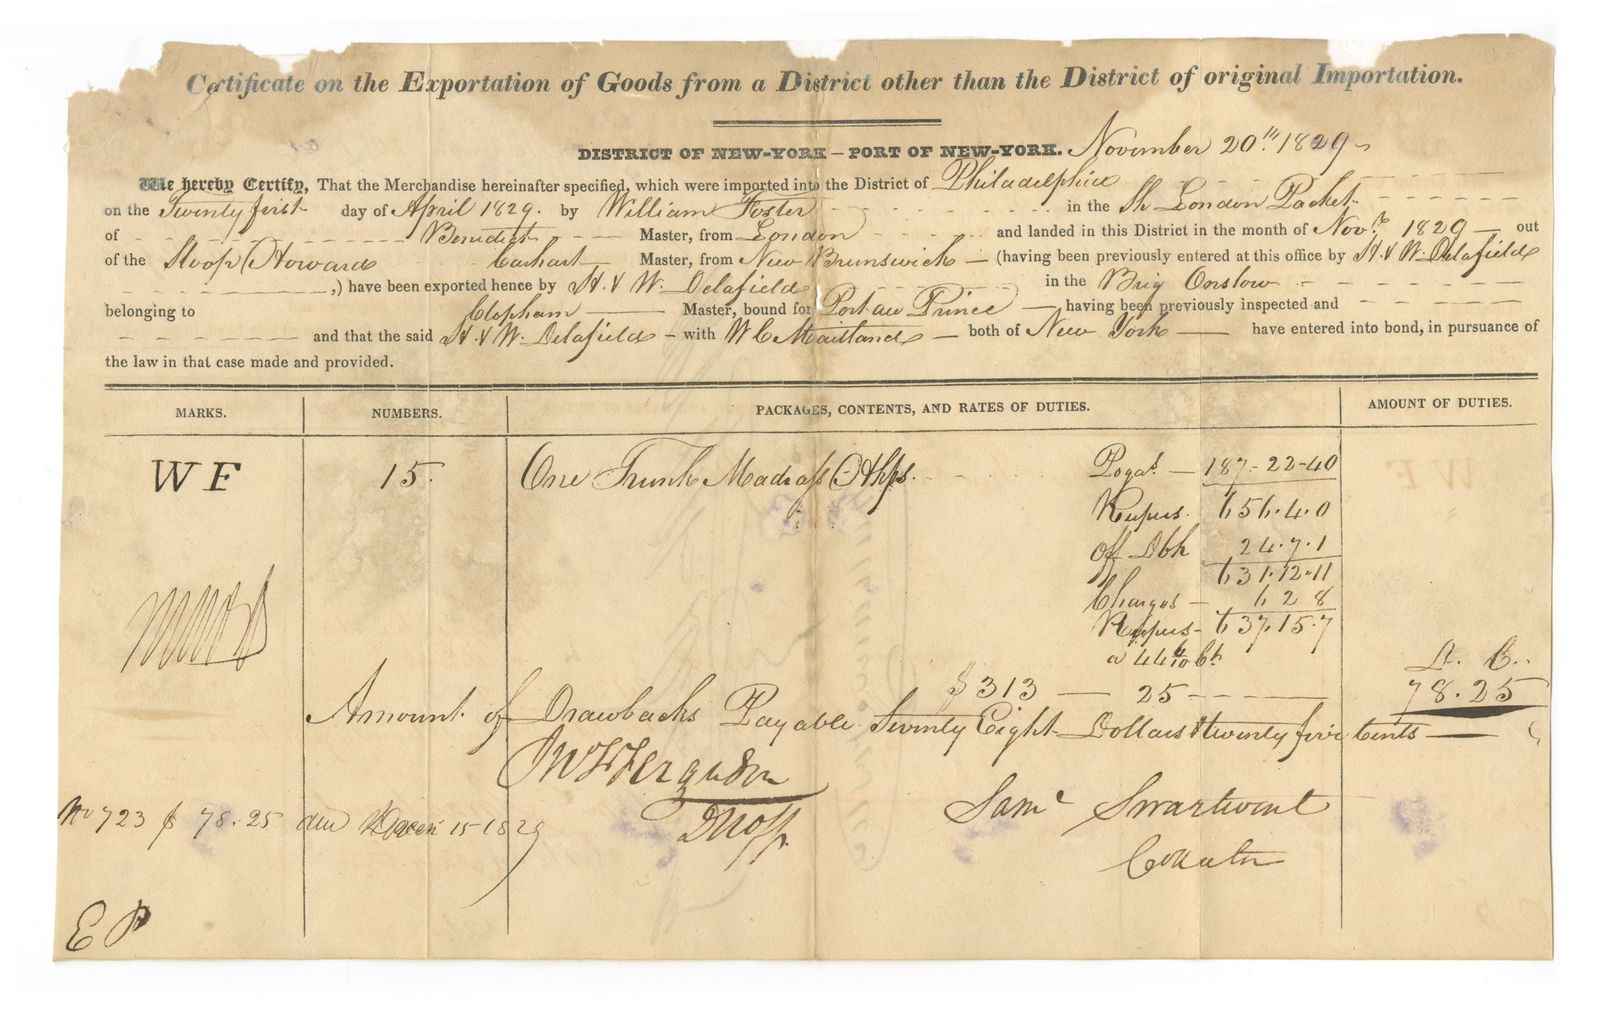 Certificate on the Exportation of Goods from a District other than the District of original Importation.
DISTRICT OF NEW-YORK—PORT OF NEW-YORK. November 20th 1829
We hereby Certify, That the Merchandise hereinafter specified, which were imported into the District of Philadelphia
on the Twenty first day of April 1829. by William Foster in the Sh London Packet
of Benedict Master, from London and landed in this District in the month of Novr 1829 out
of the Sloop Howard Carhart Master, from New Brunswick (having been previously entered at this office by H. & W. Delafield
,) have been exported hence by H. & W. Delafield in the Brig Onslow
belonging to Clopham Master, bound for Port au Prince having been previously inspected and
and that the said H. & W. Delafield with W C Maitland both of New York have entered into bond, in pursuance of
the law in that case made and provided.
MARKS. NUMBERS. PACKAGES, CONTENTS, AND RATES OF DUTIES. AMOUNT OF DUTIES.
WF 15. One Trunk Madrass Hkfs. Pogas. 187-22-40
Rupees. 656.4.0
off 24.7.1
631.12.11
Charges 6 2 8
Rupees 637.15.7
D. C.
$313 25 78.25
Amount of Drawbacks Payable Seventy Eight Dollars & twenty five Cents
Ferguson
No 723 $ 78.25 due 15 1829 Saml Swartwout
Collector
EP